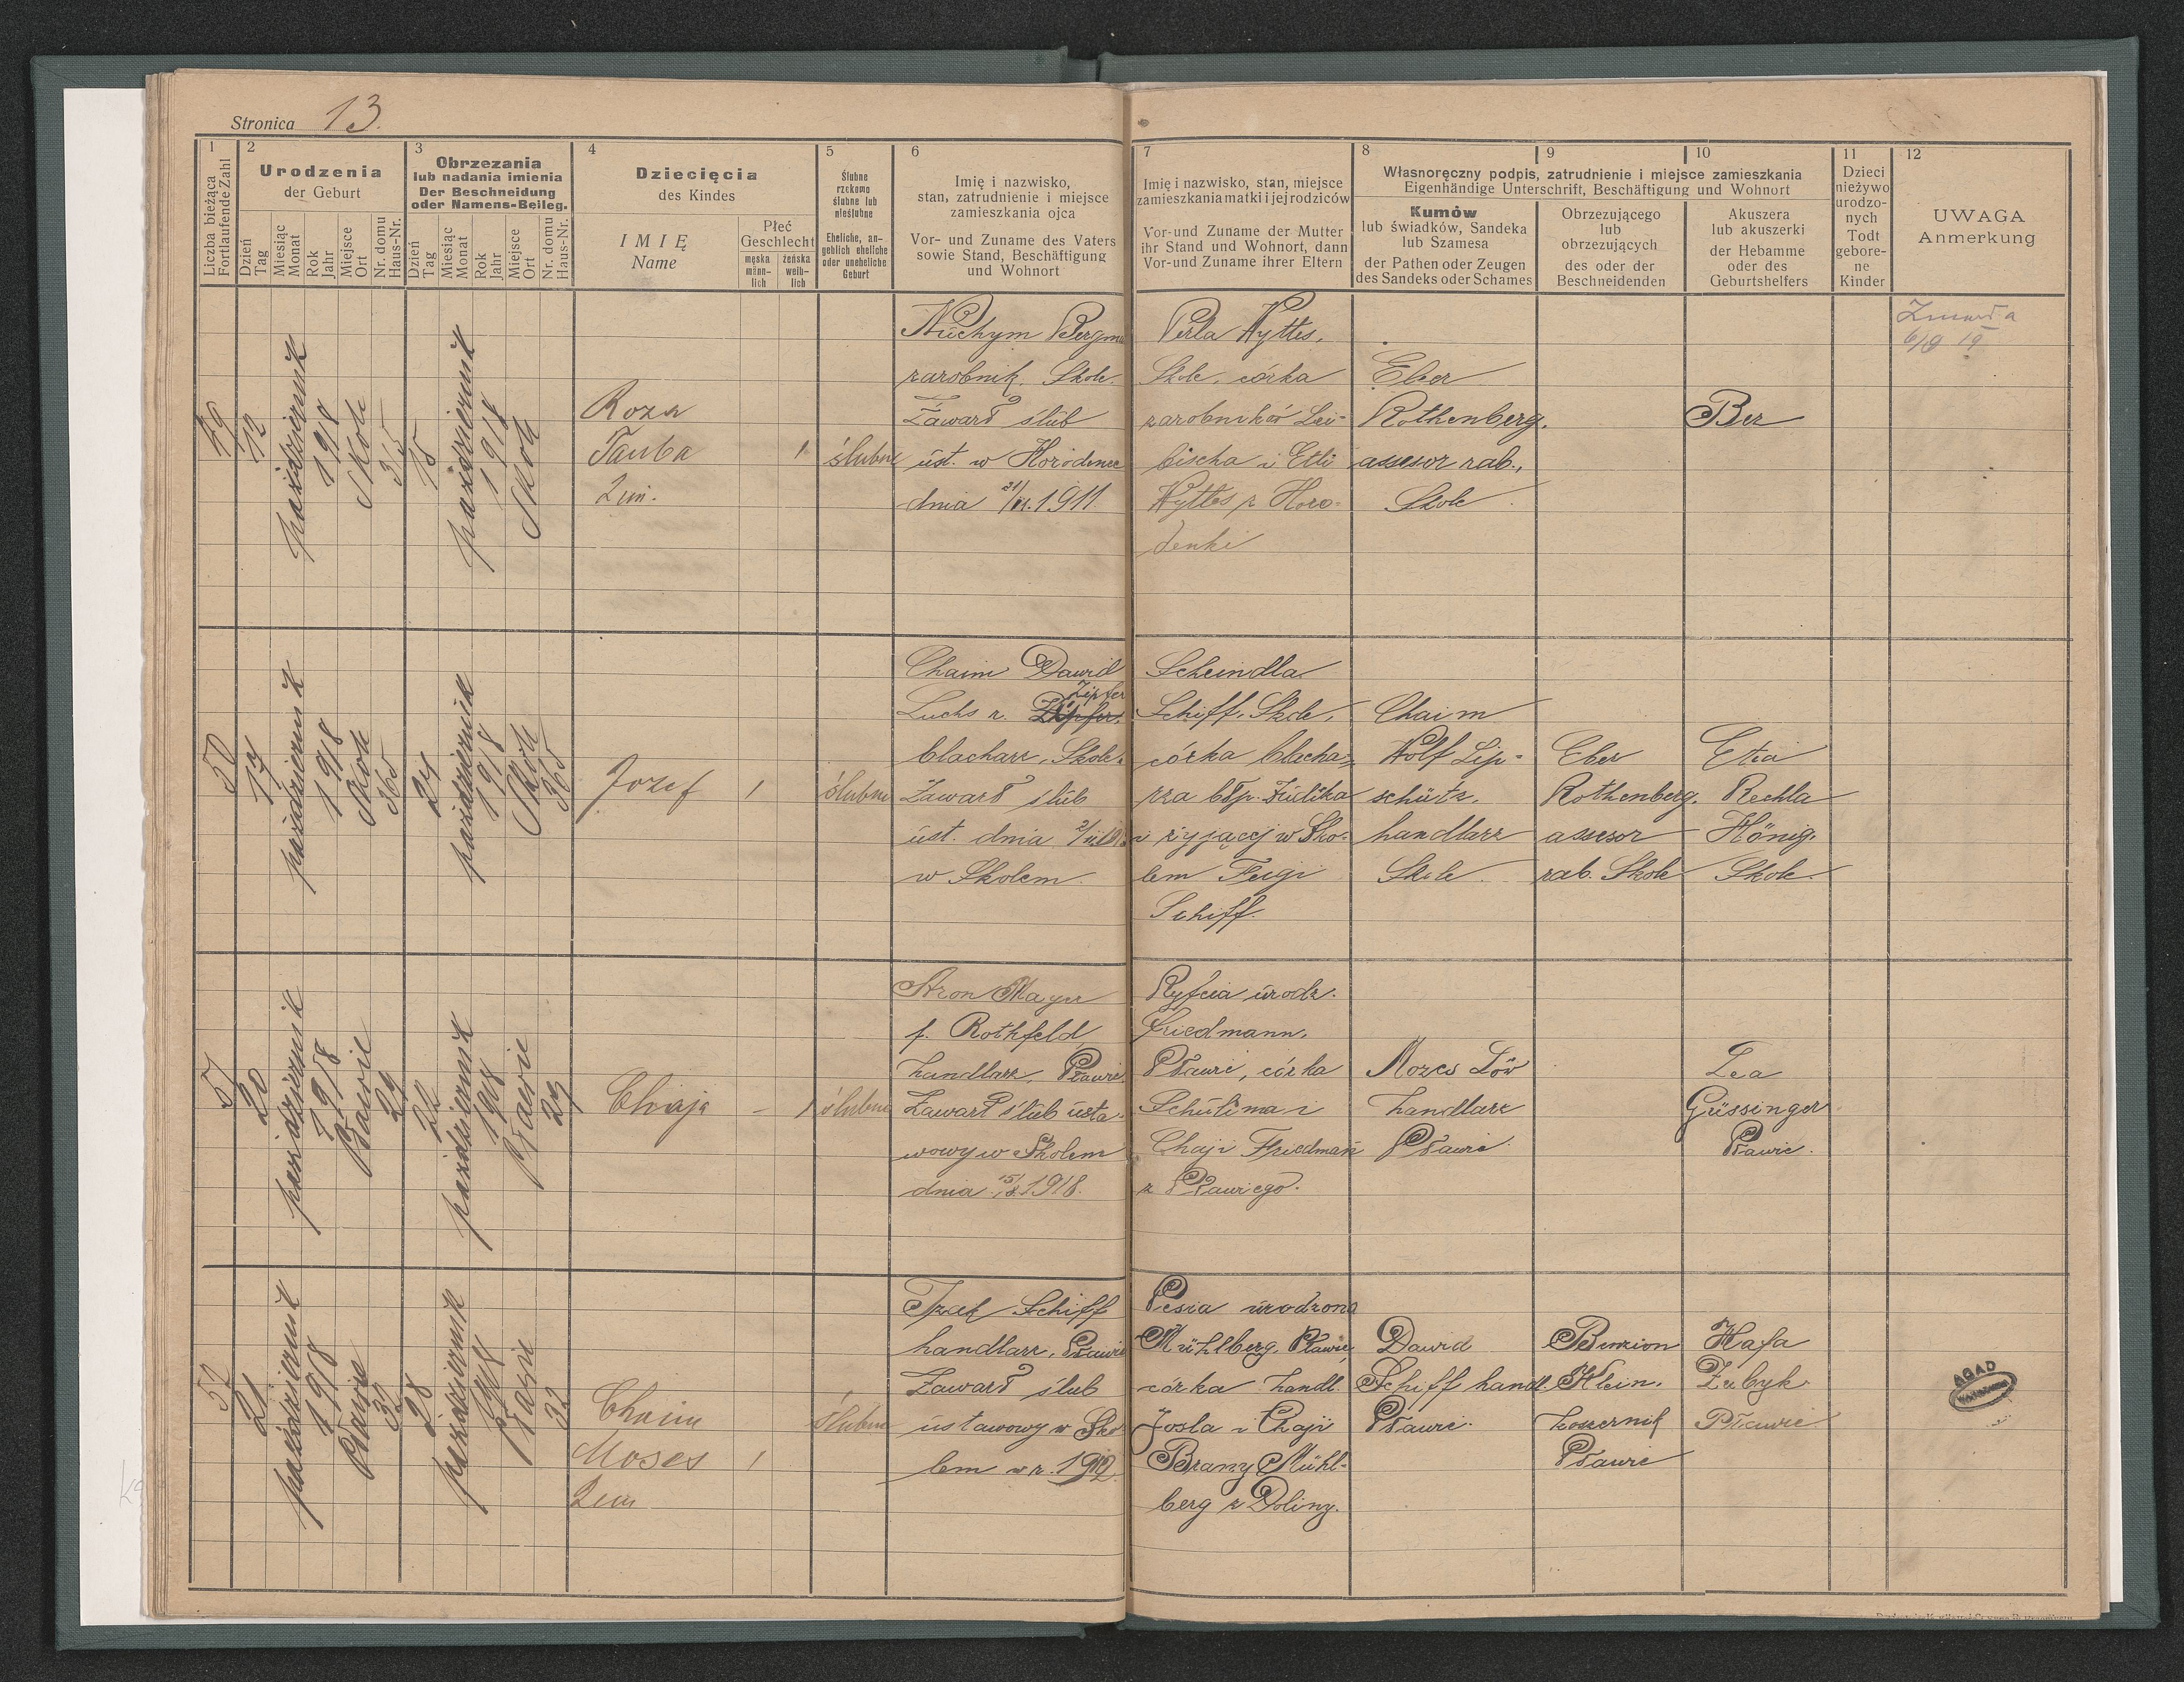 Stronica 13.
1
Liczba bieżąca
Fortlaufende Zahl
2
Urodzenia
der Geburt
Dzień
Tag
Miesiąc
Monat
Rok
Jahr
Miejsce
Ort
Nr. domu
Haus-Nr.
3
Obrzezania
lub nadania imienia
Der Beschneidung
oder Namens-Beileg.
Dzień
Tag
Miesiąc
Monat
Rok
Jahr
Miejsce
Ort
Nr. domu
Haus-Nr.
4
Dziecięcia
des Kindes
IMIĘ
Name
Płeć
Geschlecht
męska
männ-
lich
żeńska
weib-
lich
5
Ślubne
rzekomo
ślubne lub
nieślubne
Eheliche, an-
geblich eheliche
oder uneheliche
Geburt
6
Imię i nazwisko,
stan, zatrudnienie i miejsce
zamieszkania ojca
Vor- und Zuname des Vaters
sowie Stand, Beschäftigung
und Wohnort
7
Imię i nazwisko, stan, miejsce
zamieszkania matki i jej rodziców
Vor- und Zuname der Mutter
ihr Stand und Wohnort, dann
Vor- und Zuname ihrer Eltern
8
9
10
Własnoręczny podpis, zatrudnienie i miejsce zamieszkania
Eigenhändige Unterschrift, Beschäftigung und Wohnort
Kumów
lub świadków, Sandeka
lub Szamesa
der Pathen oder Zeugen
des Sandeks oder Schames
Obrzezującego
lub
obrzezujących
des oder der
Beschneidenden
Akuszera
lub akuszerki
der Hebamme
oder des
Geburtshelfers
11
Dzieci
nieżywo
urodzo-
nych
Todt
gebore-
ne
Kinder
12
UWAGA
Anmerkung
49
12
październik
1918
Skole
365
15
październik
1918
Skole
Roza
Tauba
2 im.
1
ślubne
Nuchym Bergman
zarobnik. Skole.
Zawarł ślub
ust. w Horodence
dnia 1911.
Perla Wyttes,
Skole, córka
zarobników Lei-
bischa i Etli
Wyttes z Horo-
denki
Eber
Rothenberg,
assesor rab.,
Skole
Bez
Zmarła
50
17
październik
1918
Skole
365
24
październik
1918
Skole
365
Jozef
1
ślubne
Chaim Dawid
Zipfer
Luchs r. Zipfer,
blacharz, Skole.
Zawarł ślub
ust. dnia
w Skolem.
Scheindla
Schiff, Skole,
córka blacha-
rza błp. Judka
i żyjącej w Sko-
lem Feigi
Schiff.
Chaim
Wolf Lip-
schütz,
handlarz
Skole.
Eber
Rothenberg,
assesor
rab. Skole
Etia
Rechla
König,
Skole.
51
20
październik
1918
Pławie
29
październik
1918
Pławie
29
Chaja
-
1
ślubne
Aron Mayer
f. Rothfeld,
handlarz, Pławie.
Zawarł ślub usta-
wowy w Skolem
dnia 1918.
Ryfcia urodz.
Friedmann,
Pławie, córka
Schulima i
Chaji Friedman
z Pławiego.
Mozes Löw
handlarz
Pławie.
Lea
Güssinger
Pławie.
52
21
październik
1918
Pławie
32
28
październik
1918
Pławie
32
Chaim
Moses
2 im
1
ślubne
Izak Schiff
handlarz, Pławie
Zawarł ślub
ustawowy w Sko-
lem w r. 1912.
Pesia urodzona
Mühlberg, Pławie,
córka handl.
Josla i Chaji
Brany Mühl-
berg z Doliny.
Dawid
Schiff handl.
Pławie.
Benzion
Klein,
koszernik
Pławie
Hafa
Zubyk
Pławie
AGAD